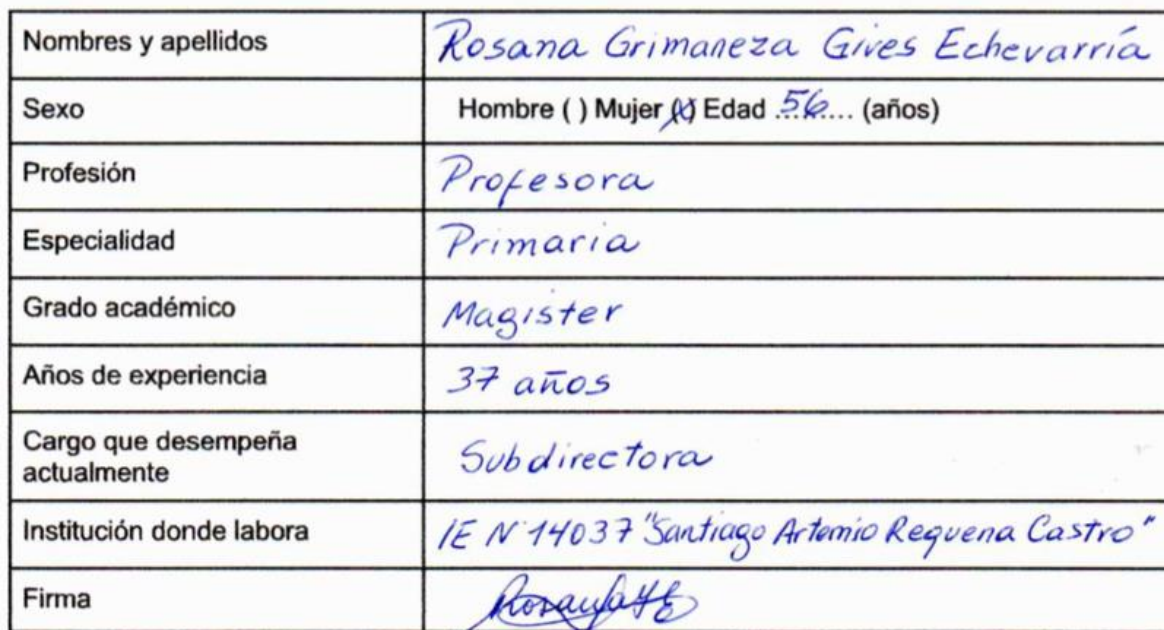 Nombres y apellidos Rosana Grimaneza Gives Echevarría
Sexo Hombre ( ) Mujer (X) Edad 56 (años)
Profesión Profesora
Especialidad Primaria
Grado académico Magister
Años de experiencia 37 años
Cargo que desempeña
actualmente Subdirectora
Institución donde labora IE N° 14037 "Santiago Artemio Requena Castro"
Firma